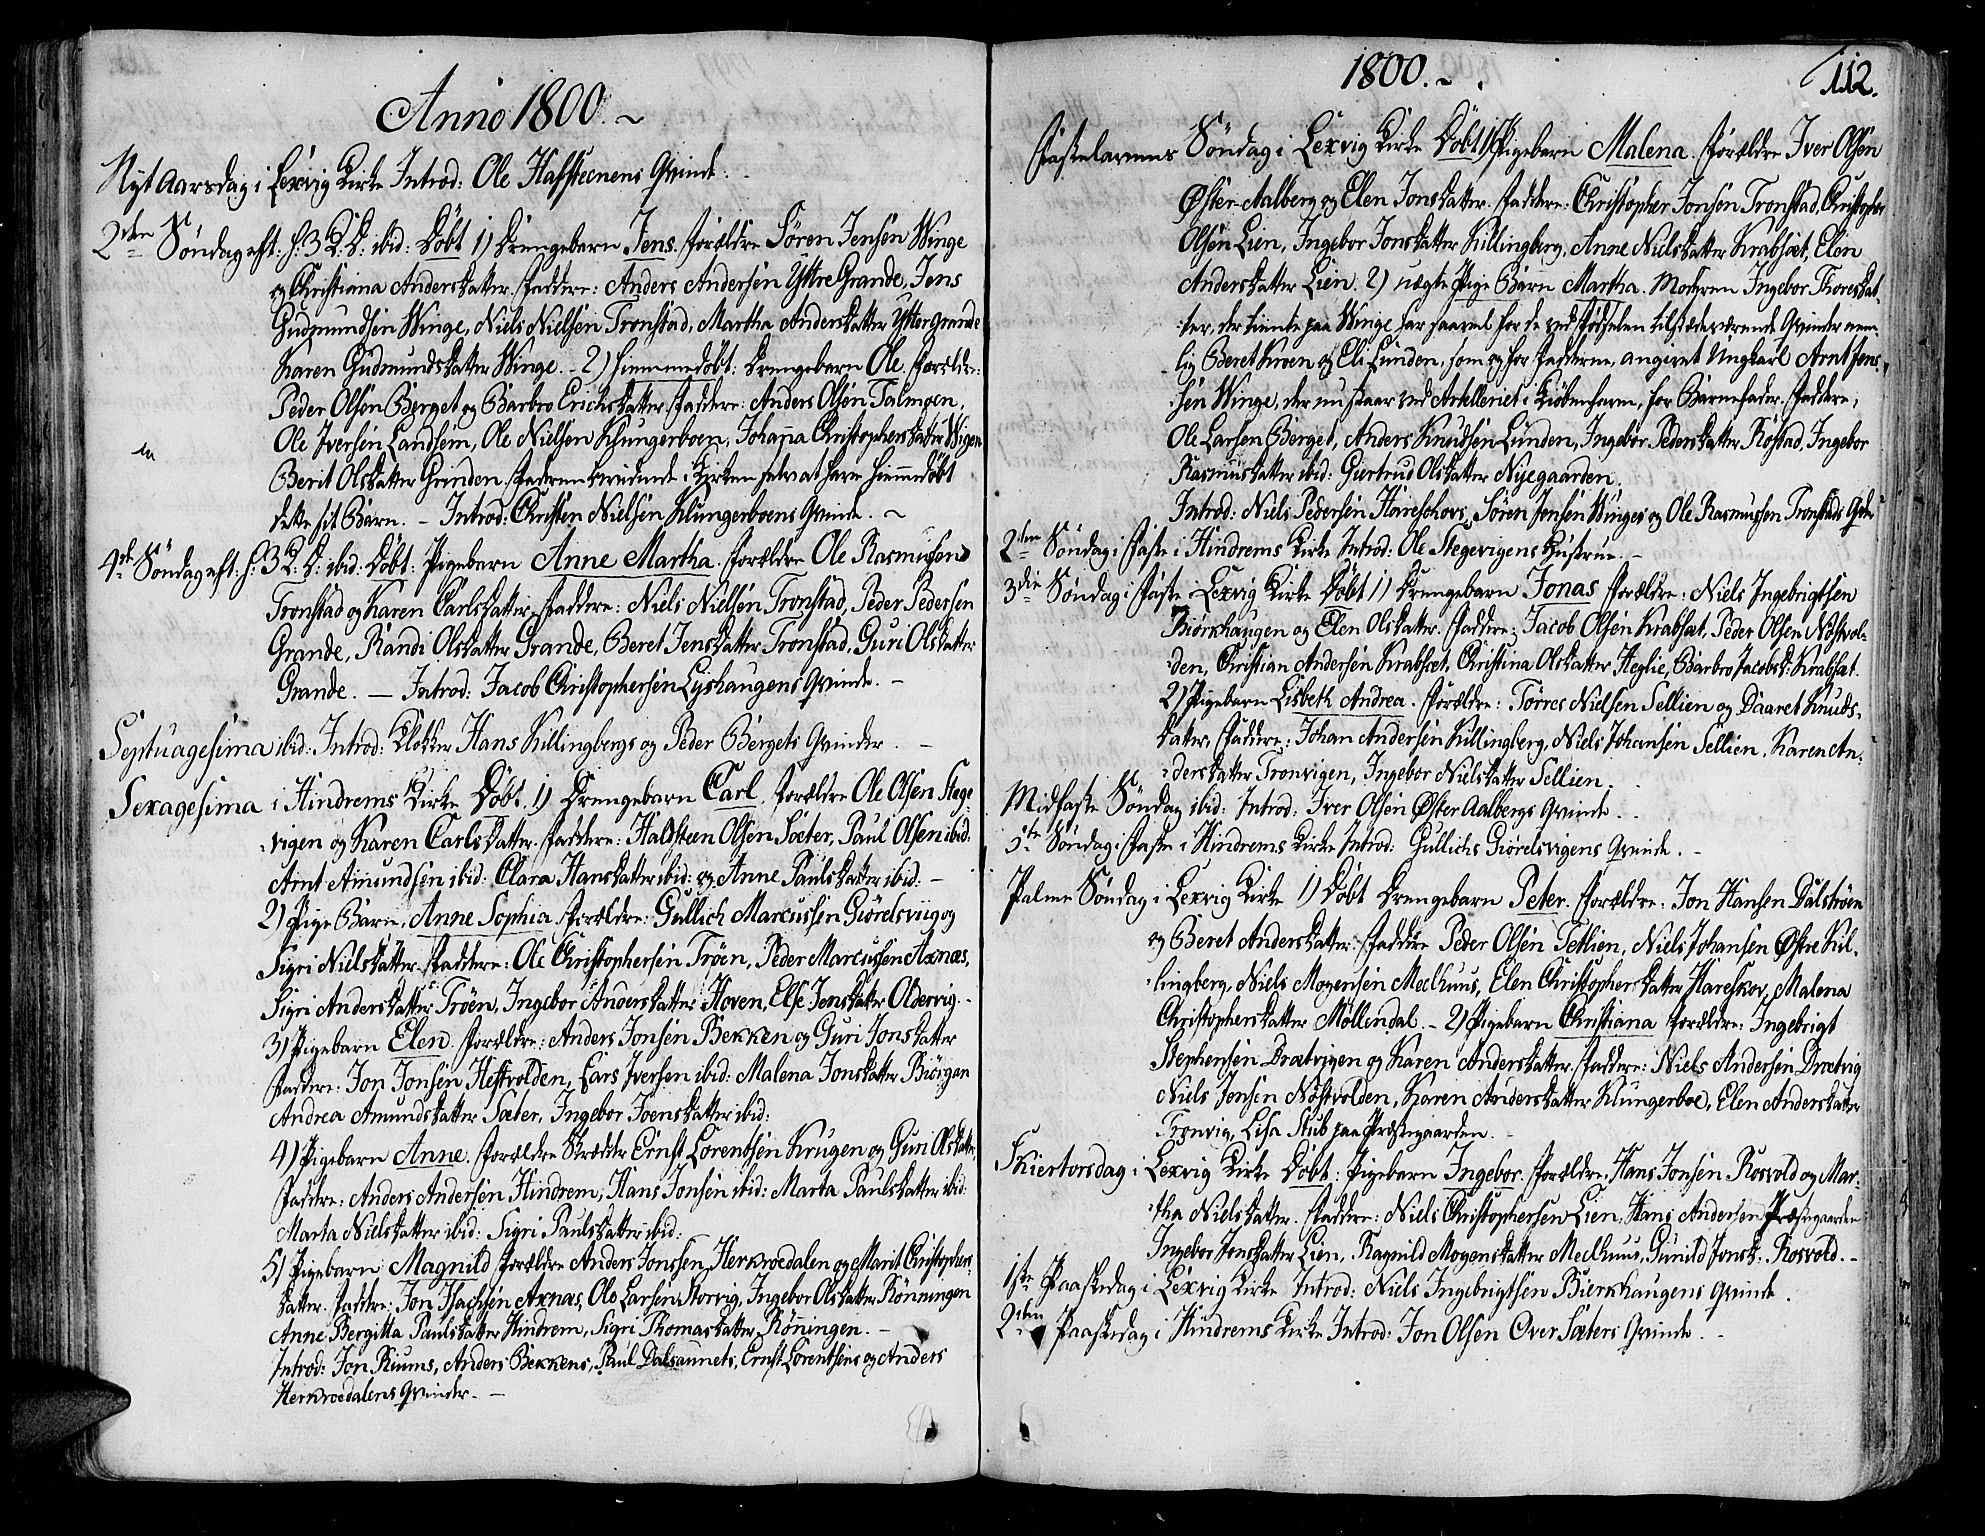 Anno 1800. ~
Nyt Aarsdag i Lexvig Kirke Introd: Ole Hafsteenens Qvinde.
2den Søndag efft: H: 3 K: D: ibid: Döbt 1) Drengebarn Jens. Forældre Sören Jensen Winge
og Christiana Andersdatter. Faddere: Anders Andersen Yttre Grande, Jens
Gudmundsen Winge, Niels Nielsen Tronstad, Martha Andersdatter Ytter Grande
Karen Gudmundsdatter Winge. - 2) hiemmedöbt: Drengebarn Ole. Forældre:
Peder Olsen Berget og Barbro Erichsdatter. Faddere: Anders Olsen Talmoen,
Ole Iversen Landsem, Ole Nielsen Klungerboen, Johanna Christophersdatter Wigen
Berit Olsdatter Grinden. Faderen kundinde i Kirken selv at have hiemmedöbt
dette sit Barn. - Introd: Christen Nielsen Klungerboens Qvinde. ~
4de Søndag efft: H: 3 K: D: ibid: Döbt: Pigebarn Anne Martha. Forældre Ole Rasmusen
Tronstad og Karen Carlsdatter. Faddere: Niels Nielsen Tronstad, Peder Pedersen
Grande, Randi Olsdatter Grande, Beret Jensdatter Tronstad, Guri Olsdatter
Grande. — Introd: Jacob Christophersen Lyshaugens Qvinde. -
Septuagesima ibid: Introd: Klokker Hans Killingbergs og Peder Bergets Qvinder. -
Sexagesima i Hindrems Kirke Döbt. 1) Drengebarn Carl. Forældre Ole Olsen Stege-
vigen og Karen Carlsdatter. Faddere: Haldsteen Olsen Sæter, Paul Olsen ibid:
Arnt Amundsen ibid: Clara Hansdatter ibid: og Anne Paulsdatter ibid: -
2) Pige Barn, Anne Sophia. Forældre: Gullich Marcussen Giördsviig og
Sigri Nielsdatter. Faddere: Ole Christophersen Tröen, Peder Marcussen Axnæs,
Sigri Andersdatter Tröen, Ingebor Andersdatter Hoven, Else Jensdatter Oldervig. -
3) Pigebarn Elen. Forældre: Anders Jonsen Bekken og Guri Jonsdatter
Faddere: Jon Jonsen Heftvolden, Lars Iversen ibid: Malena Jonsdatter Biörgan
Andrea Amundsdatter Sæter, Ingebor Joensdatter ibid:
4) Pigebarn Anne. Forældre Skrædder Ernst Lorentsen Krugen og Guri Olsdatter,
Faddere: Anders Andersen Hindrem, Hans Jonsen ibid: Marta Paulsdatter ibid:
Marta Nielsdatter ibid: Sigri Paulsdatter ibid:
5) Pigebarn Magnild Forældre Anders Jonsen Herkroedalen og Marit Christophers-
datter. Faddere: Jon Isachsen Axnæs, Ole Larsen Storvig, Ingebor Olsdatter Rönningen
Anne Bergitta Paulsdatter Hindrem, Sigri Thomasdatter Rönningen. -
Introd: Jon Riums, Anders Bekkens, Paul Dalsaunets, Ernst Lorentsens og Anders
Herkroedalens Qvinder. -
1800. ~
112.
Fastelavens Søndag i Lexvig Kirke Döbt 1) Pigebarn Malena. Forældre Iver Olsen
Øster Aalberg og Elen Jonsdatter. Faddere: Christopher Jonsen Tronstad, Christopher
Olsen Lien, Ingebor Jonsdatter Killingberg, Anne Nielsdatter Krabsæt, Elen
Andersdatter Lien. 2) uægte Pige Barn Martha. Moderen Ingebor Thoresdat-
ter, der tiente paa Winge har saavel for de ved Fødselen tilstædeværende Qvinder nem-
lig Beret Kroen og Eli Linden, som og for Fadderne, angivet Ungkarl Arnt Jen-
sen Winge, der nu staar ved Artelleriet i Kiöbenhavn, for Barnefader. Faddere,
Ole Larsen Berget, Anders Knudsen Linden, Ingebor Pedersdatter Rostad, Ingebor
Rasmusdatter ibid: Giertrud Olsdatter Nyegaarden.
Introd: Niels Pedersen Hareskovs, Sören Jensen Winges og Ole Rasmussen Tronstads Qvin:
2den Søndag i Faste i Hindrems Kirke Introd: Ole Stegevigens Hustrue. -
3die Søndag i Faste i Lexvig Kirke Döbt 1) Drengebarn Jonas Forældre: Niels Ingebrigtsen
Biörkhaugen og Elen Olsdatter. Faddere: Jacob Olsen Krabsæt, Peder Olsen Nöstvol-
den, Christian Andersen Krabsæt, Christina Olsdatter Heglie, Barbro Jacobsd: Krabsæt.
2) Pigebarn Lisbeth Andrea. Forældre: Torres Nielsen Sellien og Daaret Knuds-
datter. Faddere: Johan Andersen Killingberg, Niels Johansen Sellien, Karen An-
dersdatter Tronvigen, Ingebor Nielsdatter Sellien.
Midfaste Søndag ibid: Introd: Iver Olsen Øster Aalbergs Qvinde.
5te Søndag i Faste i Hindrems Kirke Introd: Gullichs Giördsvigens Qvinde. -
Palme Søndag i Lexvig Kirke 1) Döbt Drengebarn Peter. Forældre: Jon Hansen Dalströen
og Beret Andersdatter. Faddere Peder Olsen Sellien, Niels Johansen Østre Kil-
lingberg, Niels Mogensen Meelhuus, Elen Christophersdatter Hareskov, Malena
Christophersdatter Möllendal. - 2) Pigebarn Christiana Forældre: Ingebrigt
Stephensen Drætvigen og Karen Andersdatter. Faddere: Niels Andersen Drætvig
Niels Jensen Nöstvolden, Karen Andersdatter Klungerboe, Elen Andersdatter
Tronvig, Lisa Stub paa Præstegaarden. -
Skiertorsdag i Lexvig Kirke Döbt: Pigebarn Ingebor. Forældre: Hans Jonsen Rosvold og Mar-
tha Nielsdatter. Faddere: Niels Christophersen Lien, Hans Andersen Præstegaarden
Ingebor Jonsdatter Lien, Ragnild Mogensdatter Meelhuus, Gunild Jonsd: Rosvold. -
1ste Paaskedag i Lexvig Kirke Introd: Niels Ingebrigtsen Bierkhaugens Qvinde.
2den Paaskedag i Hindrems Kirke Introd: Jon Olsen Over Sæters Qvinde. -